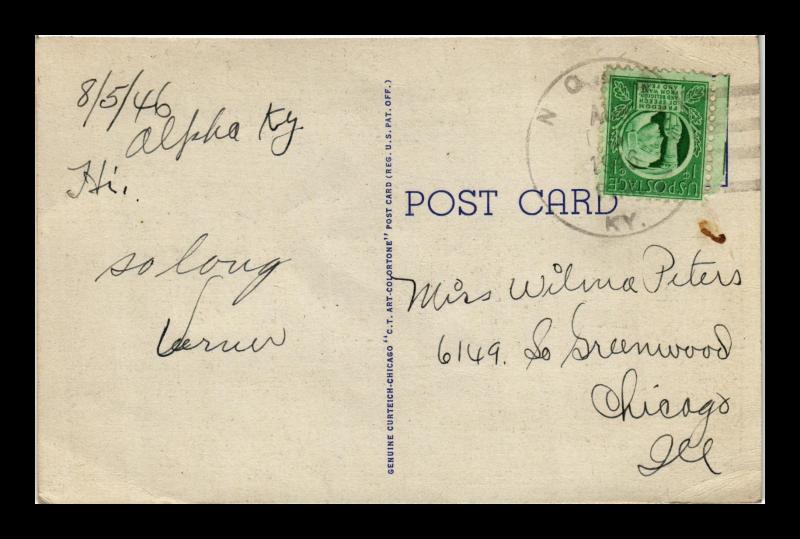 8/5/46
Alpha Ky
Hi.
so long
Verner
GENUINE CURTEICH-CHICAGO "C.T. ART-COLORTONE" POST CARD (REG. U.S. PAT. OFF.)
POST CARD
KY.
FREEDOM
OF SPEECH
AND RELIGION
FROM WANT
AND FEAR
US POSTAGE
1¢ 1¢
Miss Wilma Peters
6149. So Greenwood
Chicago
Ill